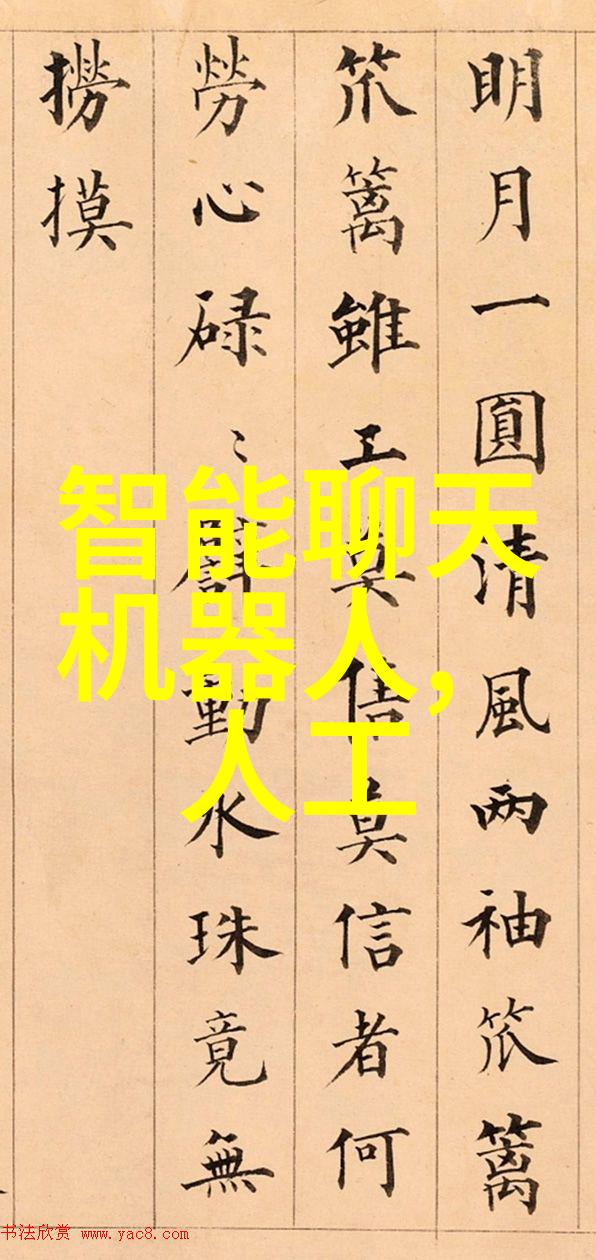 明月一圓清風两袖笊篱
笊篱雖工莫信莫信者何
勞心碌〻動水珠竟無
撈摸
智能聊天
机器人,
人工
书法欣赏 www.yac8.com